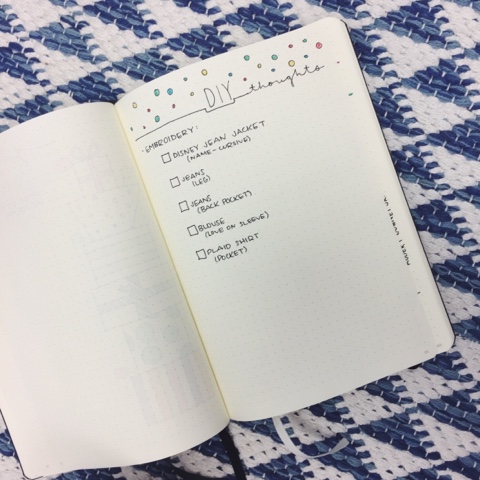 DIY thoughts
-EMBROIDERY:
DISNEY JEAN JACKET
(NAME-CURSIVE)
JEANS
(LEG)
JEANS
(BACK POCKET)
BLOUSE
(LOVE ON SLEEVE)
PLAID SHIRT
(POCKET)